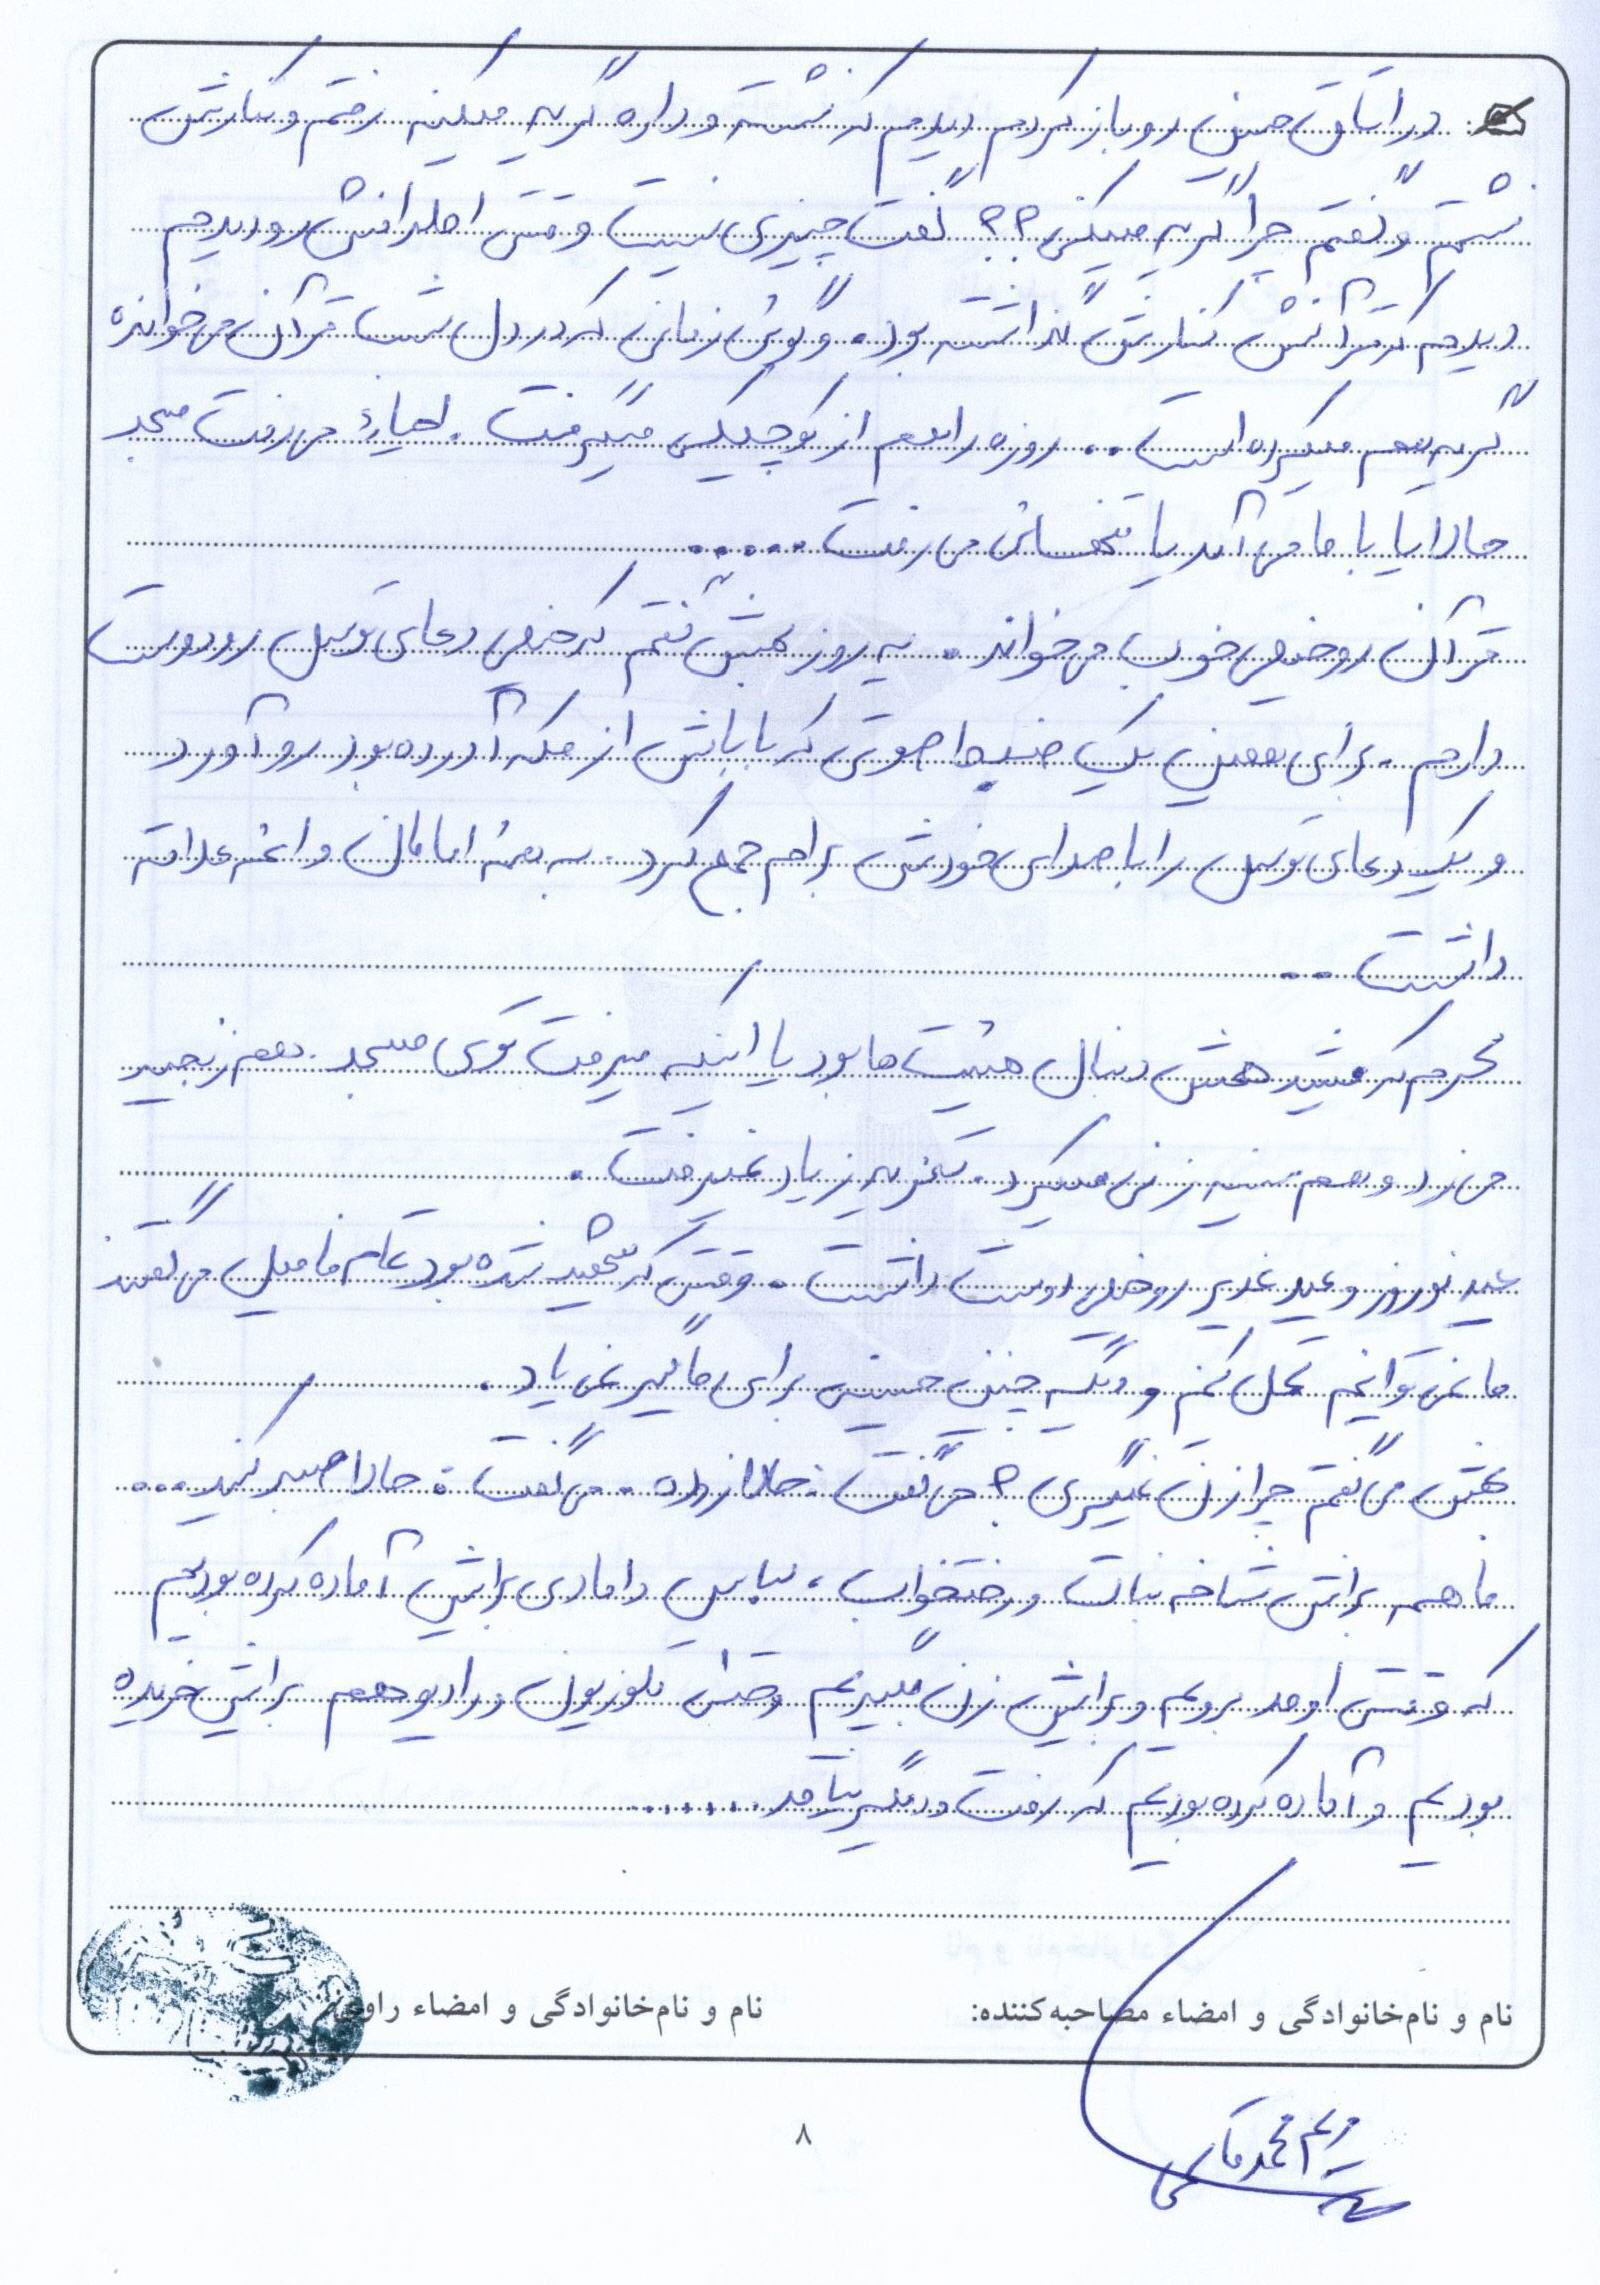 در اتاق حسن رو باز کردم دیدم که نشسته و داره گریه میکنه رفتم و کنارش
نشستم و گفتم چرا گریه میکنی؟؟ گفت چیزی نیست وقتی اطرافش رو دیدم
دیدم که قرآنش کنارش گذاشته بود. و گوئی زمانی که در دل شب قرآن می خوانده
گریه هم میکرده است.. روزه را هم از کوچیکی میگرفت. احیاء می رفت مسجد
حالا یا با ما می آمد یا تنهائی می رفت.....
قرآن رو خیلی خوب می خواند. یه روز بهش گفتم که خیلی دعای توسل رو دوست
دارم. برای همین یک ضبط صوتی که باباش از مکه آورده بود رو آورد
و یک دعای توسل را با صدای خودش برام جمع کرد. به همۀ امامان و ائمه علاقه
داشت..
محرم که میشد همش دنبال هیئت ها بود یا اینکه میرفت توی مسجد. هم زنجیر
می زد و هم سینه زنی میکرد. تعزیه زیاد نمیرفت.
عید نوروز و عید غدیر رو خیلی دوست داشت. وقتی که شهید شده بود تمام فامیل می گفتند
ما نمی توانیم تحمل کنیم و دیگه چنین حسنی برای ما گیر نمی یاد.
بهش می گفتم چرا زن نمیگیری؟ می گفت: حالا زوده. می گفت: حالا صبر کنید...
ما هم براش شاخه نبات و رختخواب، لباس دامادی براش آماده کرده بودیم
که وقتی اومد برویم و براش زن بگیریم وحتی تلوزیون و رادیو هم براش خریده
بودیم و آماده کرده بودیم که رفت و دیگه نیآمد......
نام و نام‌خانوادگی و امضاء مصاحبه‌کننده:
نام و نام‌خانوادگی و امضاء راوی:
مریم محمد
۸